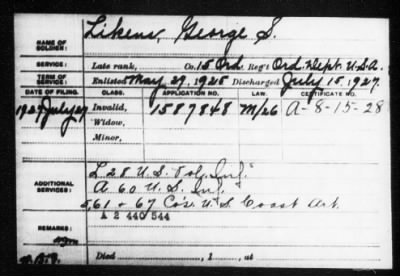 NAME OF SOLDIER: Likens, George S.
SERVICE: Late rank, Co. 15 Ord. Reg't Ord. Dept. U.S.A.
TERM OF SERVICE: Enlisted May 29, 1925 Discharged July 15, 1927.
DATE OF FILING. CLASS. APPLICATION NO. LAW. CERTIFICATE NO.
1927 July 27 Invalid, 1587848 M/26 A-8-15-28
Widow,
Minor,
L 28 U.S. Vol. Inf.
ADDITIONAL SERVICES: A 60 U.S. Inf.
5, 61 + 67 Co's. U.S. Coast Art.
A 2 440 544
REMARKS:
Died , 1 , at